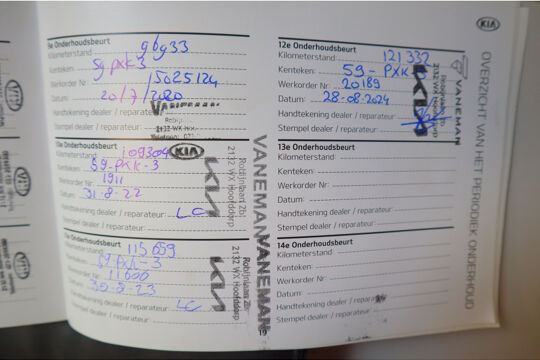 9e Onderhoudsbeurt
Kilometerstand: 96933
Kenteken: 59 PXK 3
Werkorder Nr: 15025124
Datum: 20/7/2020
Handtekening dealer / reparateur:
Stempel dealer / reparateur:
10e Onderhoudsbeurt
Kilometerstand 109304
KIA
Kenteken: 59-PXK-3
Werkorder Nr: 1911
Datum: 31-8-22
Handtekening dealer / reparateur: LC
Stempel dealer / reparateur:
Onderhoudsbeurt
Kilometerstand 115659
Kenteken: 59-PXK-3
Werkorder Nr: 11600
Datum: 30-8-23
Handtekening dealer / reparateur: LC
Stempel dealer / reparateur:
KIA
VANEMAN
Robijnlaan 2b
2132 WX Hoofddorp
KIA
VANEMAN
Robijnlaan 2b
2132 WX Hoofddorp
19
12e Onderhoudsbeurt
Kilometerstand: 121 332
Kenteken: 59-PXK-3
Werkorder Nr: 20189
Datum: 28-08-2024
Handtekening dealer / reparateur:
Stempel dealer / reparateur:
KIA
VANEMAN
2132 WX
13e Onderhoudsbeurt
Kilometerstand:
Kenteken:
Werkorder Nr:
Datum:
Handtekening dealer / reparateur:
Stempel dealer / reparateur:
14e Onderhoudsbeurt
Kilometerstand:
Kenteken:
Werkorder Nr:
Datum:
Handtekening dealer / reparateur:
Stempel dealer / reparateur:
KIA
OVERZICHT VAN HET PERIODIEK ONDERHOUD